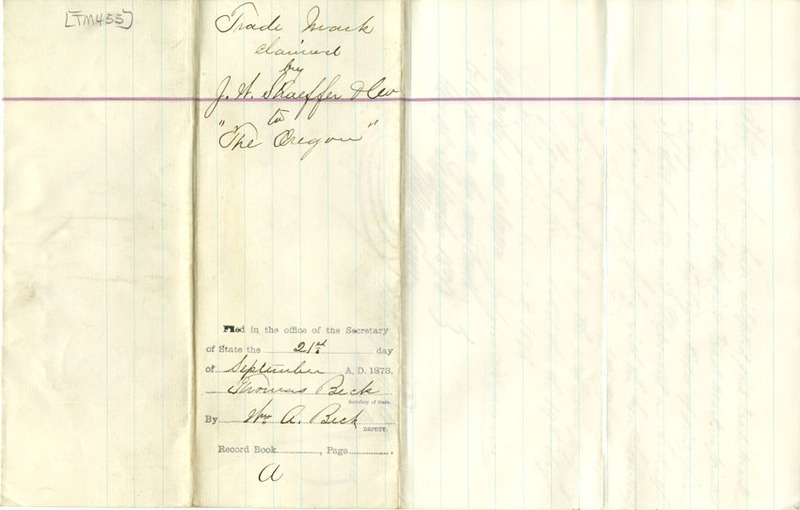 [TM455]
Trade Mark
claimed
by
J. W. Shaeffer & Co
to
"The Oregon"
Filed in the office of the Secretary
of State the 21st day
of September A. D. 1878,
Thomas Beck
Secretary of State.
By Wm A. Beck
DEPUTY.
Record Book............, Page............
A